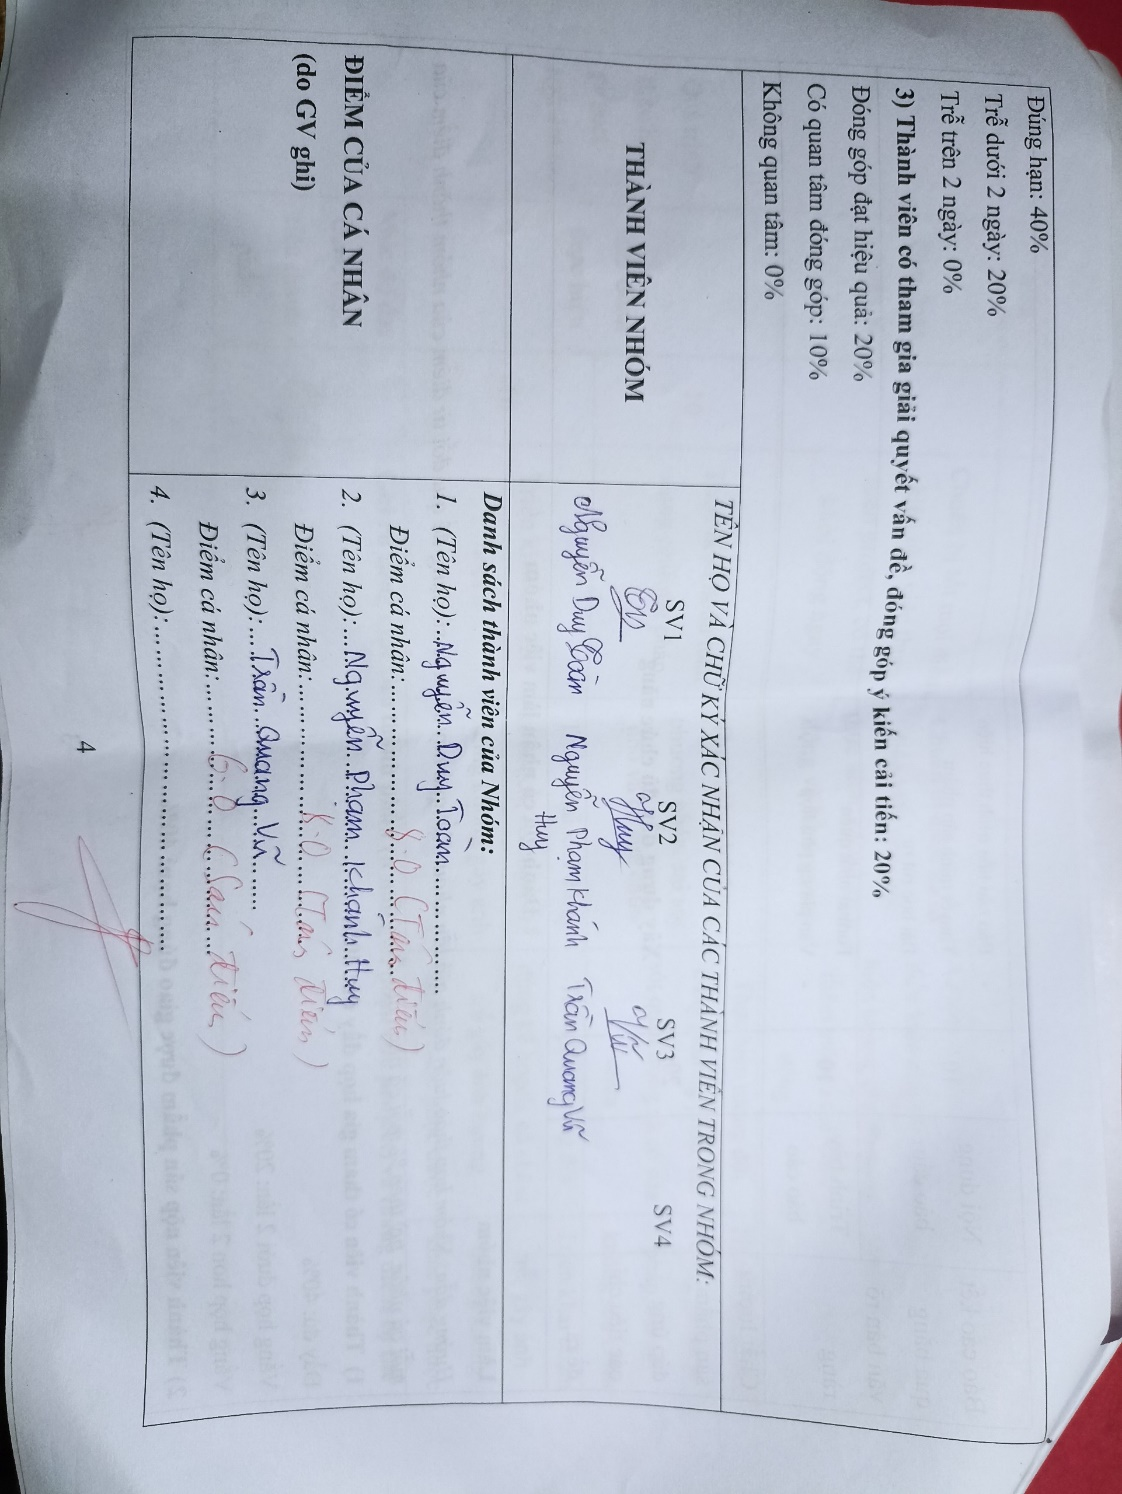 Đúng hạn: 40%
Trễ dưới 2 ngày: 20%
Trễ trên 2 ngày: 0%
3) Thành viên có tham gia giải quyết vấn đề, đóng góp ý kiến cải tiến: 20%
Đóng góp đạt hiệu quả: 20%
Có quan tâm đóng góp: 10%
Không quan tâm: 0%
THÀNH VIÊN NHÓM
TÊN HỌ VÀ CHỮ KÝ XÁC NHẬN CỦA CÁC THÀNH VIÊN TRONG NHÓM:
SV1 SV2 SV3 SV4
Huy Vũ
Nguyễn Duy Toàn Nguyễn Phạm Khánh Trần Quang Vũ
Huy
ĐIỂM CỦA CÁ NHÂN
(do GV ghi)
Danh sách thành viên của Nhóm:
1. (Tên họ): Nguyễn Duy Toàn
Điểm cá nhân: 8.0 (Tám điểm)
2. (Tên họ): Nguyễn Phạm Khánh Huy
Điểm cá nhân: 8.0 (Tám điểm)
3. (Tên họ): Trần Quang Vũ
Điểm cá nhân: 6.0 (Sáu điểm)
4. (Tên họ):
4